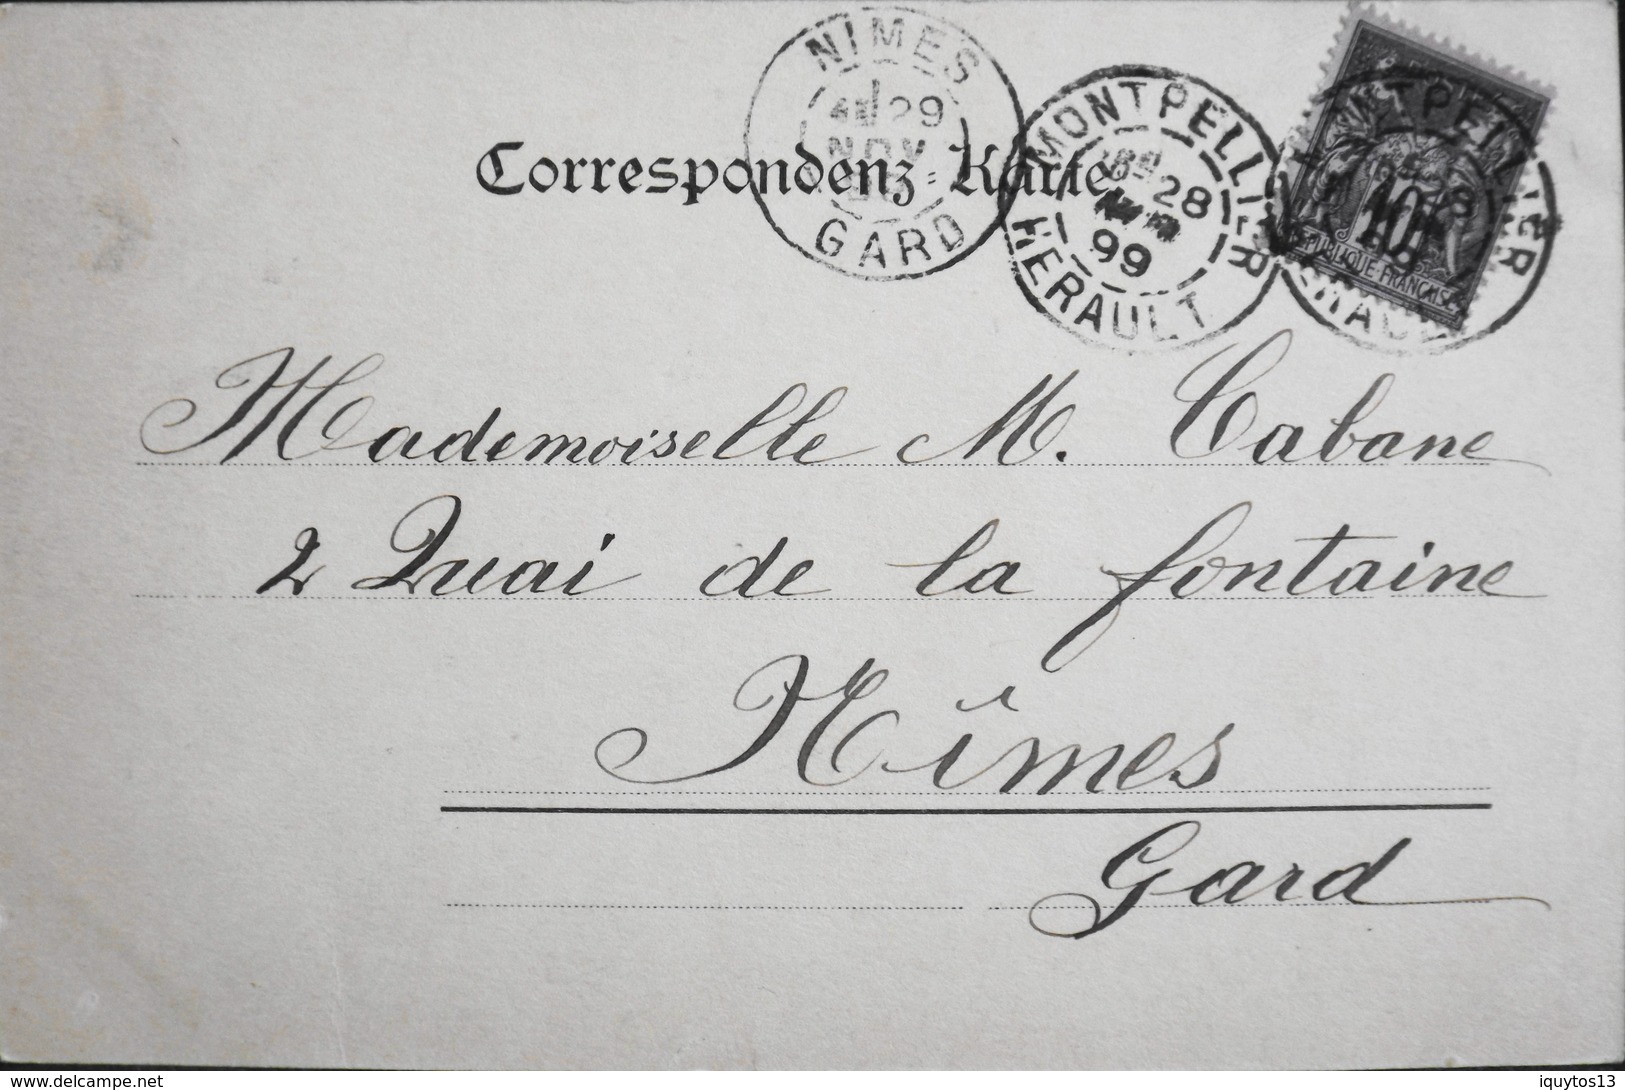 NIMES
29
NOV.
GARD
Correspondenz-Karte.
MONTPELLIER
28
99
HERAULT
MONTPELLIER
10
REPUBLIQUE-FRANCAISE
Mademoiselle M. Cabane
2 Quai de la fontaine
Nîmes
Gard
delcampe.net
iquytos13